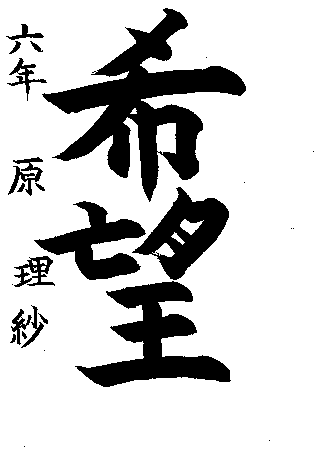 希望
六年 原 理紗